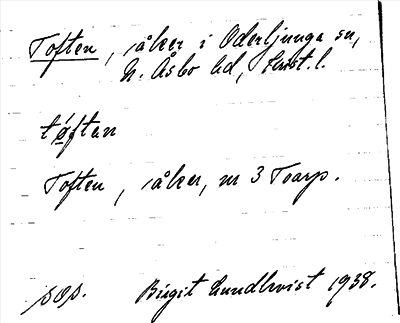 Toften, såker i Oderljunga sn,
N. Åsbo hd, Krist. l.
tøften
Toften, såker, nr 3 Toarp.
sds.
Birgit Lundkvist 1938.